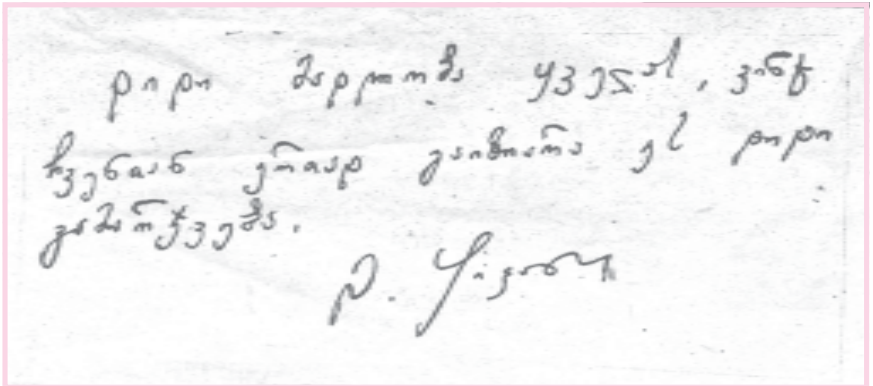 დიდი მადლობა ყველას, ვინც
ჩვენთან ერთად გაიზიარა ეს დიდი
გამარჯვება.